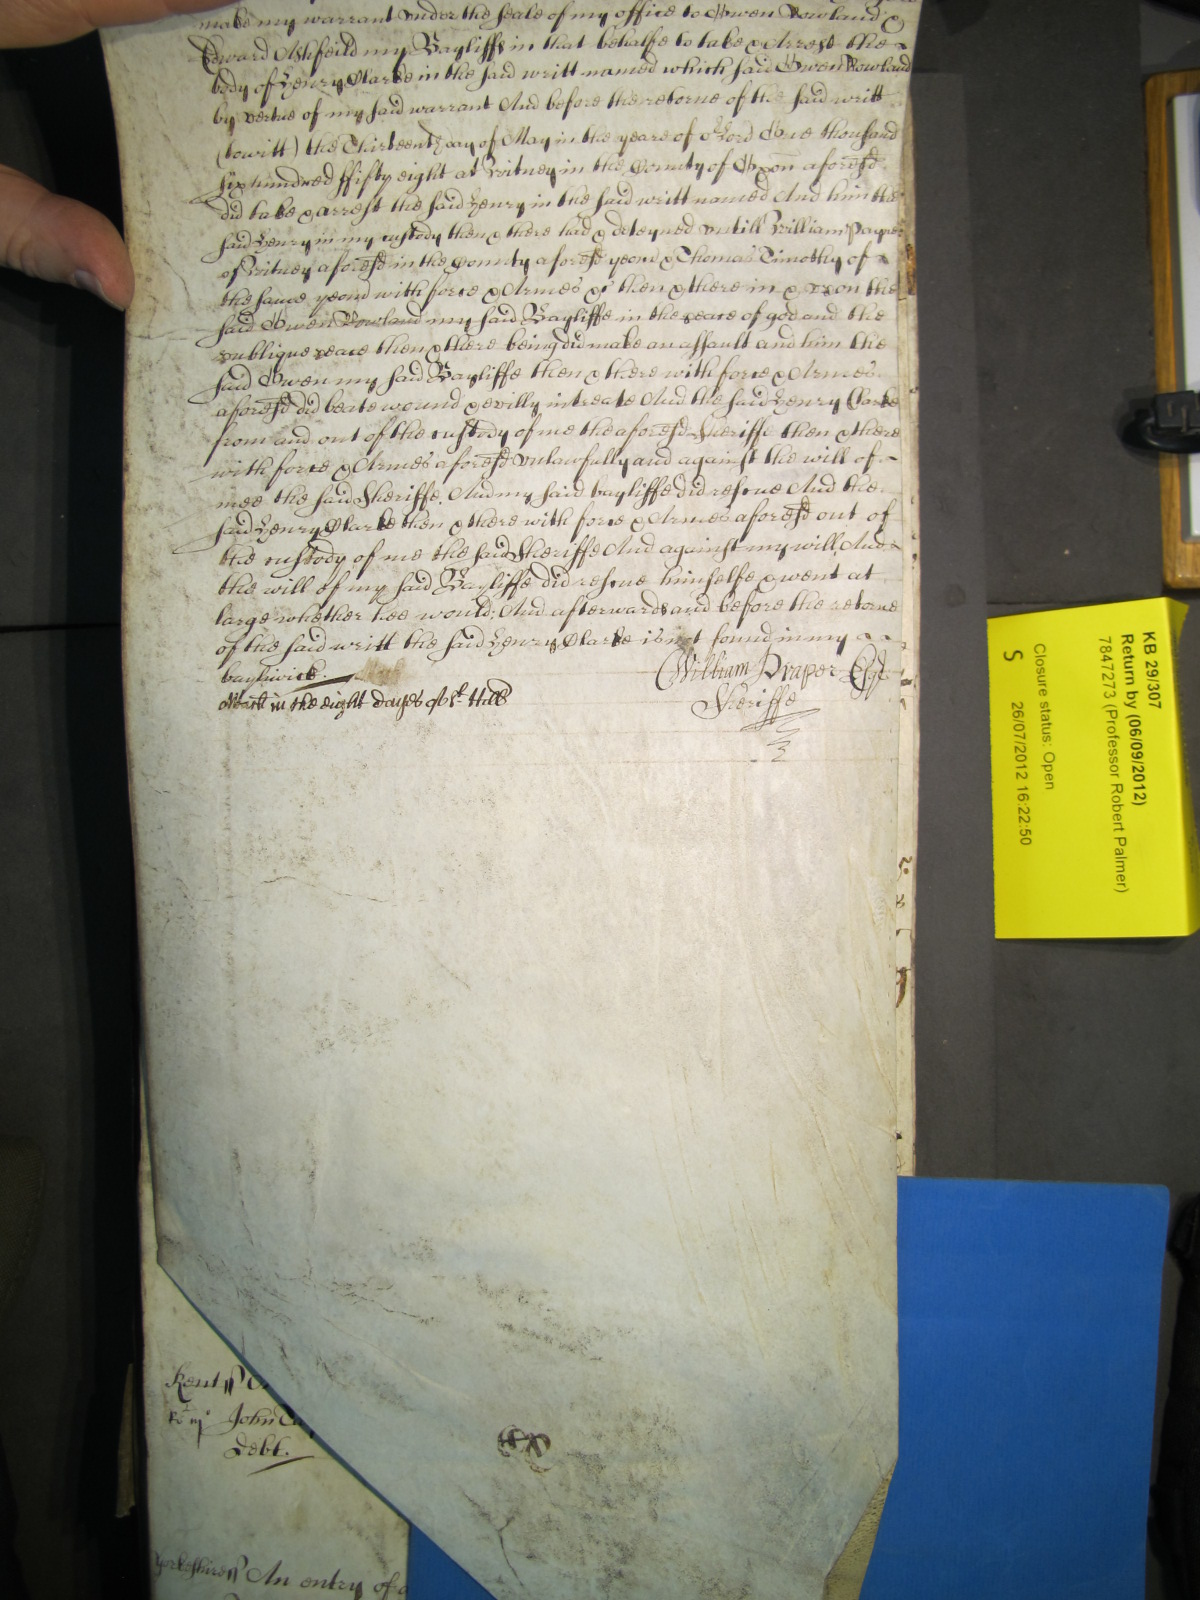 make my warrant under the seale of my office to Owen Rowland &
Edward Ashfeild my Bayliffs in that behalfe to take & Arrest the
body of Henry Clarke in the said writt named which said Owen Rowland
by vertue of my said warrant And before the retorne of the said writt
(towitt) the Thirteenth day of May in the yeare of our Lord One thousand
six hundred ffifty eight at Witney in the County of Oxon aforesd
did take & arrest the said Henry in the said writt named And him the
said Henry in my custody then & there had & deteyned untill William Payne
of Witney aforesd in the County aforesd yeom & Thomas Timothy of
the same yeom with force & Armes &c then & there in & upon the
said Owen Rowland my said Bayliffe in the peace of god and the
publique peace then & there being did make an assault and him the
said Owen my said Bayliffe then & there with force & Armes
aforesd did beate wound & evilly intreate And the said Henry Clarke
from and out of the custody of me the aforesd Sheriffe then & there
with force & Armes aforesd unlawfully and against the will of
mee the said Sheriffe And my said bayliffe did rescue And the
said Henry Clarke then & there with force & Armes aforesd out of
the custody of me the said Sheriffe And against my will And
the will of my said Bayliffe did rescue himselfe & went at
large whether hee would; And afterwards and before the retorne
of the said writt the said Henry Clarke is not found in my
baylywick.
William Draper Esqr
Sheriffe
in the eight dayes of St Hill
Kent ss
John
Debt.
Yorkeshire ss An entry of a
KB 29/307
Return by (06/09/2012)
7847273 (Professor Robert Palmer)
Closure status: Open
S 26/07/2012 16:22:50